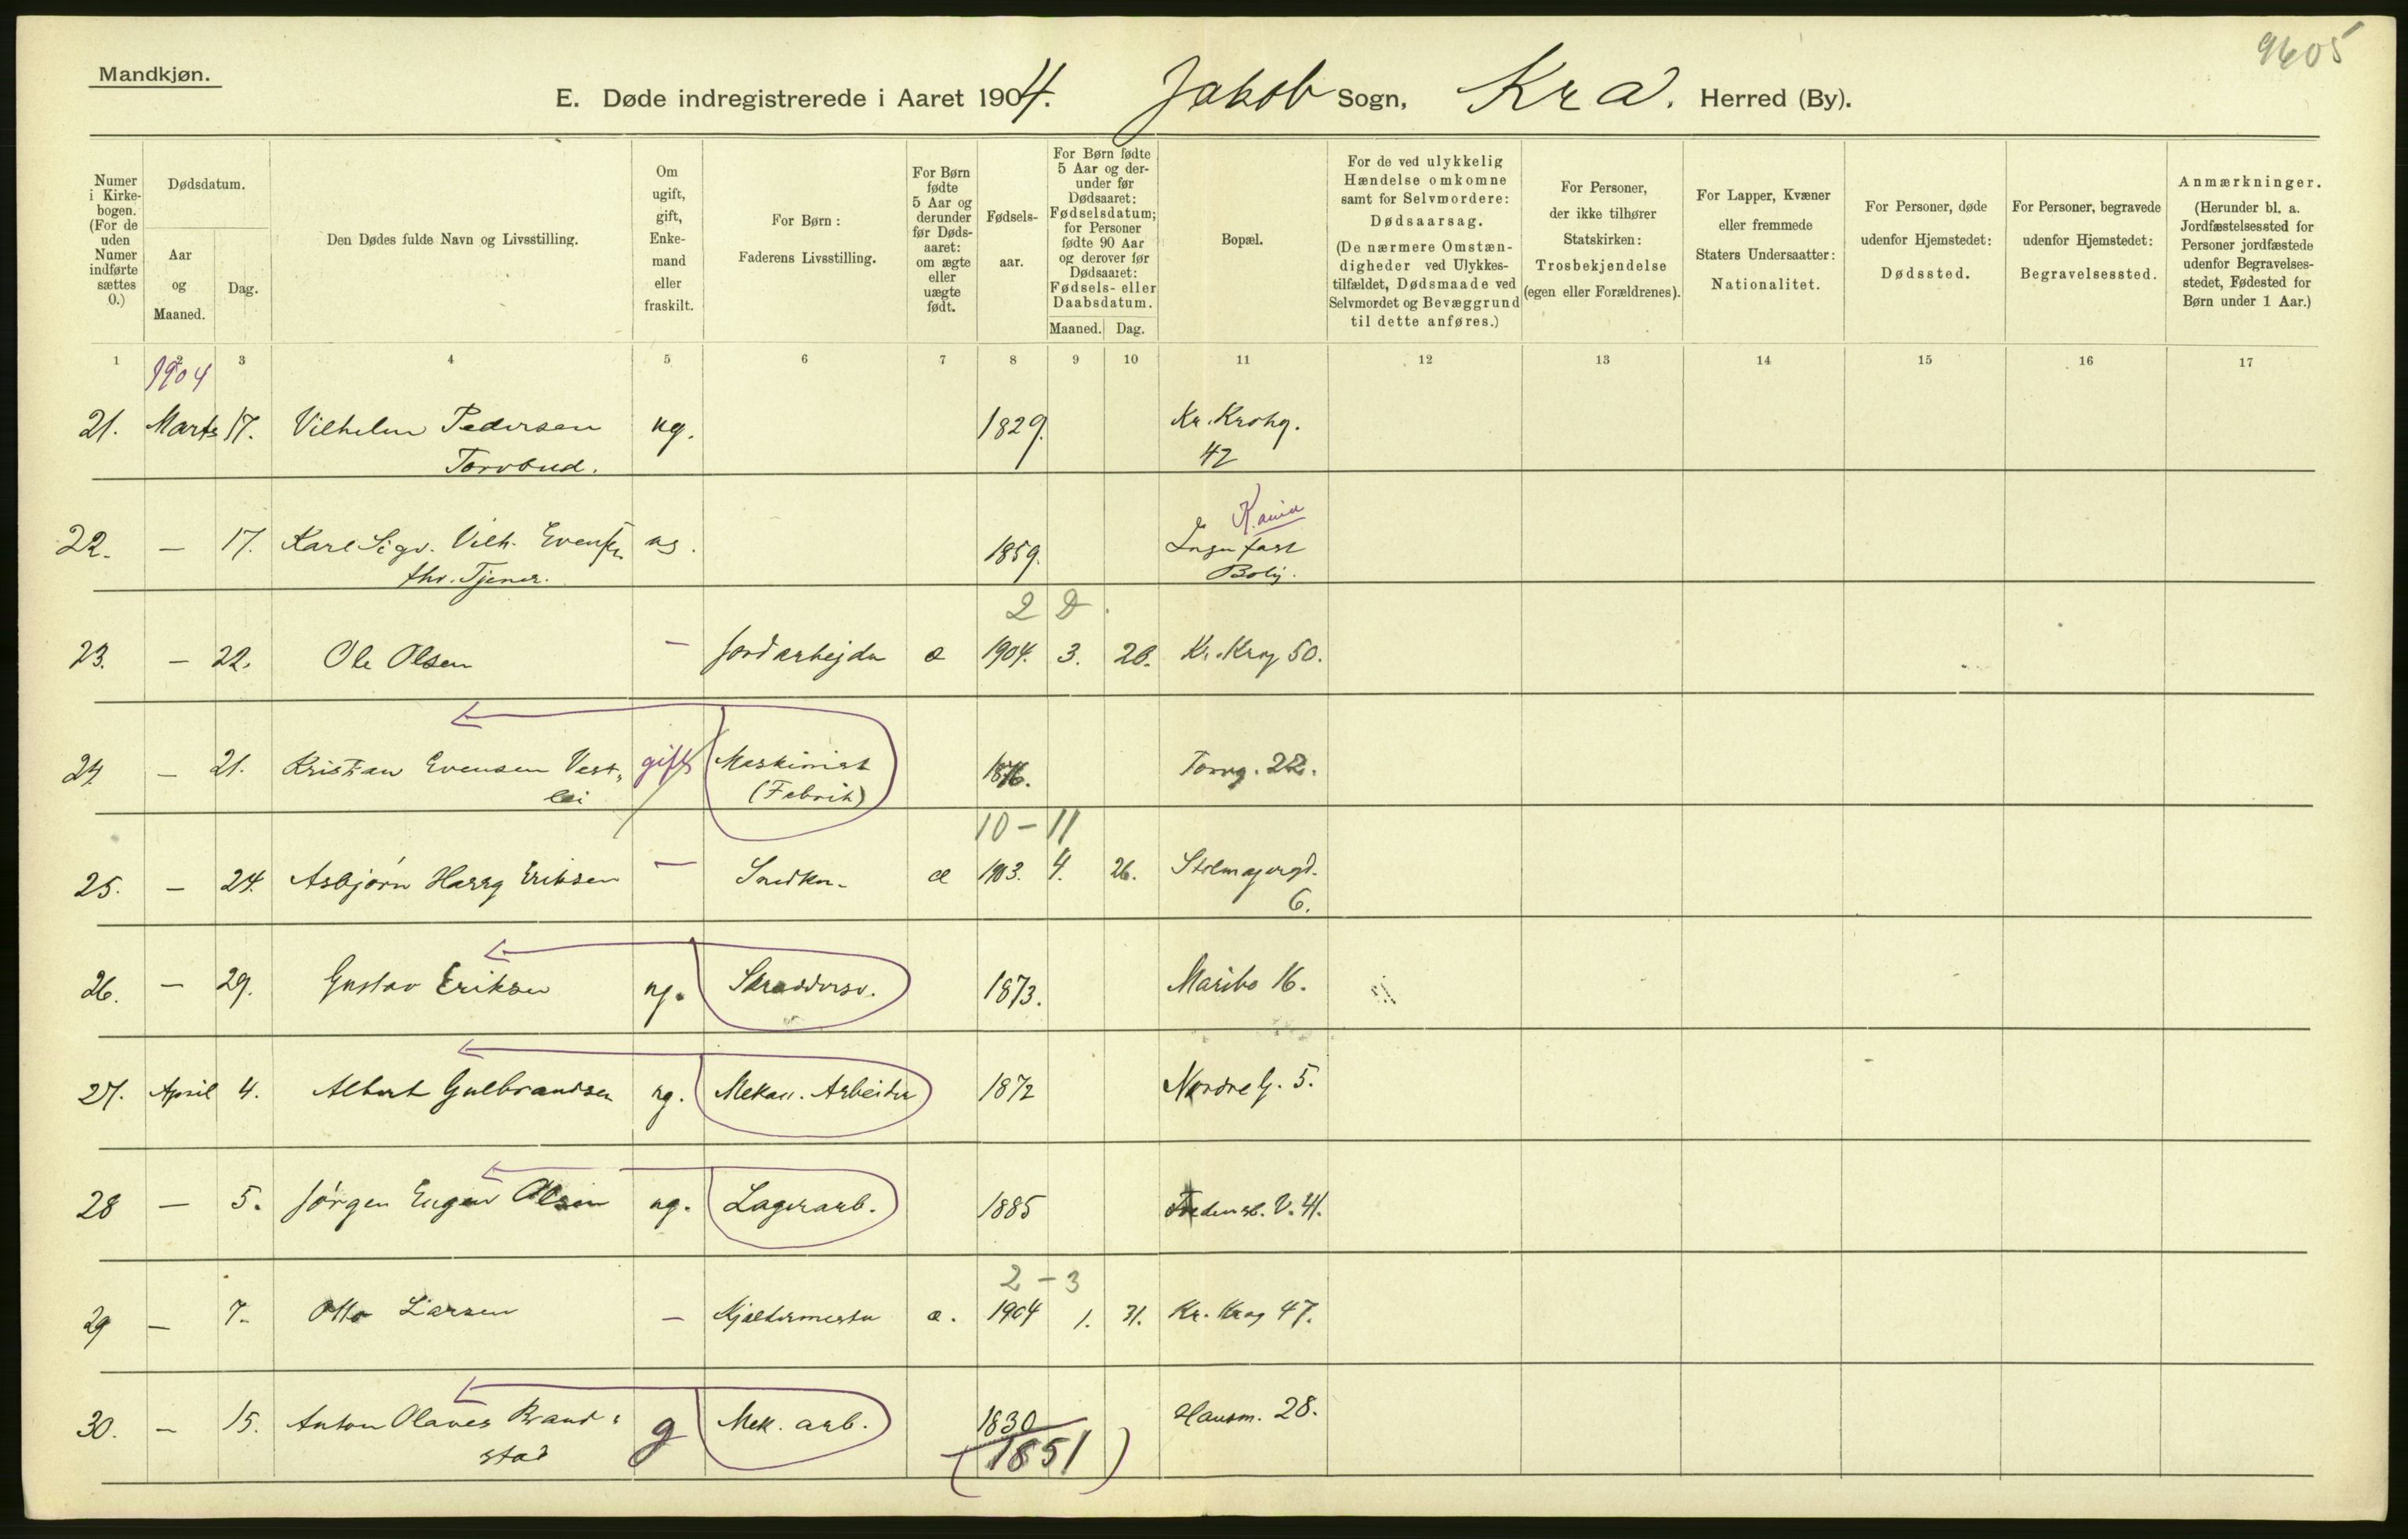 9605
Mandkjøn.
E. Døde indregistrerede i Aaret 1904. Jakob Sogn, Kra. Herred (By).
Numer i Kirkebogen. (For de uden Numer indførte sættes 0.)
Dødsdatum.
Aar og Maaned.
Dag.
Den Dødes fulde Navn og Livsstilling.
Om ugift, gift, Enkemand eller fraskilt.
For Børn: Faderens Livsstilling.
For Børn fødte 5 Aar og derunder før Dødsaaret: om ægte eller uægte født.
Fødselsaar.
For Børn fødte 5 Aar og derunder før Dødsaaret: Fødselsdatum; for Personer fødte 90 Aar og derover før Dødsaaret: Fødsels- eller Daabsdatum.
Maaned. Dag.
Bopæl.
For de ved ulykkelig Hændelse omkomne samt for Selvmordere: Dødsaarsag. (De nærmere Omstændigheder ved Ulykkestilfældet, Dødsmaade ved Selvmordet og Bevæggrund til dette anføres.)
For Personer, der ikke tilhører Statskirken: Trosbekjendelse (egen eller Forældrenes).
For Lapper, Kvæner eller fremmede Staters Undersaatter: Nationalitet.
For Personer, døde udenfor Hjemstedet: Dødssted.
For Personer, begravede udenfor Hjemstedet: Begravelsessted.
Anmærkninger. (Herunder bl. a. Jordfæstelsessted for Personer jordfæstede udenfor Begravelsesstedet, Fødested for Børn under 1 Aar.)
1 2 3 4 5 6 7 8 9 10 11 12 13 14 15 16 17
1904
21. Marts 17. Vilhelm Pedersen ug. 1829. Kr. Krohg.
Torvbud. 42
K.ania
22. — 17. Karl Sigv. Vilh. Evensen ug. 1859. Ingen fast
fhv. Tjener. Bolig.
2 D.
23. — 22. Ole Olsen — Jordarbejder æ 1904. 3. 20. Kr. Krog 50.
24 — 21. Kristian Evensen Vest- gift Maskinist 1876. Torvg. 22.
lei (Fabrik)
10 – 11
25. — 24. Asbjørn Harry Eriksen — Snedker. æ 1903. 4. 26. Stolmagergd.
6.
26. — 29. Gustav Eriksen ug. Skræddersv. 1873. Maribo 16.
27. April 4. Albert Gulbrandsen ug. Mekan. Arbeider 1872 Nordre G. 5.
28 — 5. Jørgen Eugen Olsen ug. Lagerarb. 1885 Fredensb. V. 41.
2 – 3
29 — 7. Otto Larsen — Kjældermester æ. 1904 1. 31. Kr. Krog 47.
30. — 15. Anton Olaves Brand- g Mek. arb. 1830 Hausm. 28.
stad (1851)